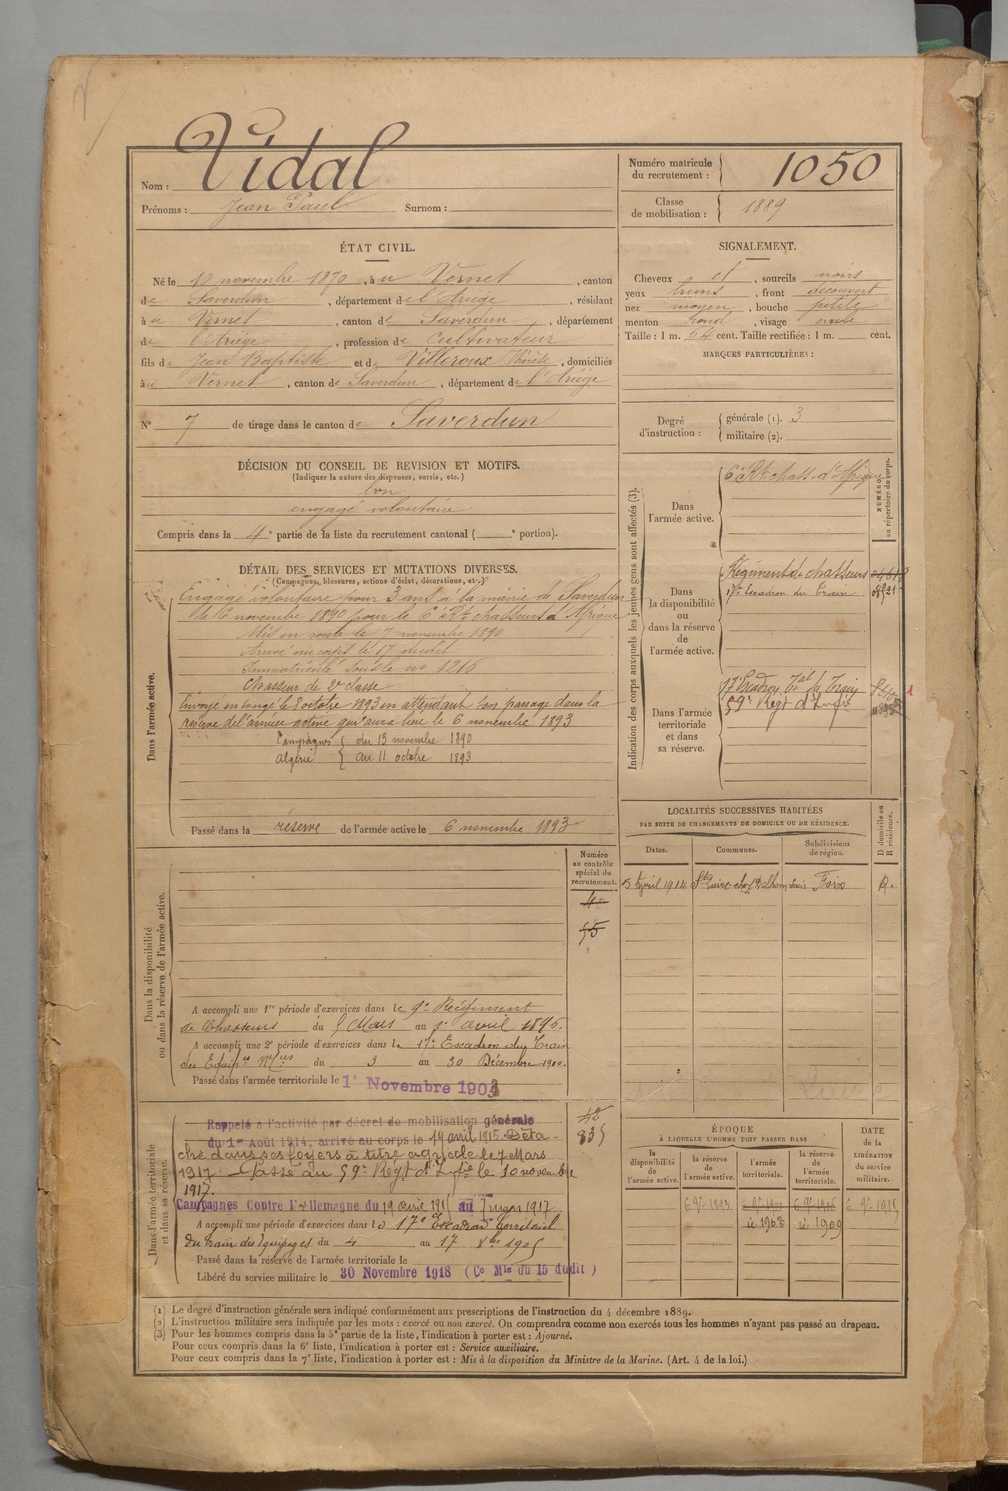 Vidal
Nom :
Prénoms : Jean Paul Surnom :
Numéro matricule du recrutement : 1050
Classe de mobilisation : 1889
ÉTAT CIVIL.
Né le 10 novembre 1870, à u Vernet, canton
de Saverdun, département de l'Ariége, résidant
à u Vernet, canton de Saverdun, département
de l'Ariége, profession de Cultivateur
fils de Jean Baptiste et de Villeroux Thérèse, domiciliés
à u Vernet, canton de Saverdun, département de l'Ariége
N° 7 de tirage dans le canton de Saverdun
SIGNALEMENT.
Cheveux et, sourcils noirs
yeux bruns, front découvert
nez moyen, bouche petite
menton rond, visage ovale
Taille : 1 m. 64 cent. Taille rectifiée : 1 m. cent.
MARQUES PARTICULIÈRES :
Degré d'instruction : générale (1). 3
militaire (2).
DÉCISION DU CONSEIL DE REVISION ET MOTIFS.
(Indiquer la nature des dispenses, sursis, etc.)
bon
engagé volontaire
Compris dans la 4e partie de la liste du recrutement cantonal ( e portion).
DÉTAIL DES SERVICES ET MUTATIONS DIVERSES.
(Campagnes, blessures, actions d'éclat, décorations, etc.)
Dans l'armée active.
Engagé volontaire pour 3 ans à la mairie de Saverdun
le 6 novembre 1890 pour le 6e Rt chasseurs d'Afrique
Mis en route le 7 novembre 1890
Arrivé au corps le 17 dudit
Immatriculé sous le no 1216
Chasseur de 2e classe
Envoyé en congé le 3 octobre 1893 en attendant son passage dans la
réserve de l'armée active qui aura lieu le 6 novembre 1893
Campagnes { du 13 novembre 1890
Algérie { au 11 octobre 1893
Passé dans la réserve de l'armée active le 6 novembre 1893
Indication des corps auxquels les jeunes gens sont affectés (3).
NUMÉRO au répertoire du corps.
Dans l'armée active.
6e Rt chass. d'Afrique
Dans la disponibilité ou dans la réserve de l'armée active.
Régiment de chasseurs
17e Escadron du Train
Dans l'armée territoriale et dans sa réserve.
17e Escadron Tal du Train
59e Regt d'Infie
LOCALITÉS SUCCESSIVES HABITÉES
PAR SUITE DE CHANGEMENTS DE DOMICILE OU DE RÉSIDENCE.
Dates. Communes. Subdivisions de région. D domicile ou R résidence.
5 Avril 1914 Foix R.
Dans la disponibilité ou dans la réserve de l'armée active.
Numéro au contrôle spécial du recrutement.
55
A accompli une 1re période d'exercices dans le 9e Régiment
de Chasseurs du 5 Mars au 1er avril 1896.
A accompli une 2e période d'exercices dans le 17e Escadron du Train
des Equipes Mres du 3 au 30 Décembre 1900.
Passé dans l'armée territoriale le 1er Novembre 1903
Dans l'armée territoriale et dans sa réserve.
42
835
Rappelé à l'activité par décret de mobilisation générale
du 1er Août 1914, arrivé au corps le 19 avril 1915. Déta-
ché dans ses foyers à titre agricole le 7 Mars
1917. Passé au 59e Regt d'Infie le 10 novembre
1917.
Campagnes Contre l'Allemagne du 19 avril 1915 au 7 mars 1917
A accompli une période d'exercices dans le 17e Escadron territorial
du train des Equipages du 4 au 17 Xbre 1905
Passé dans la réserve de l'armée territoriale le
Libéré du service militaire le 30 Novembre 1918 (Ce Mle du 15 dudit)
ÉPOQUE
A LAQUELLE L'HOMME DOIT PASSER DANS
DATE de la LIBÉRATION du service militaire.
la disponibilité de l'armée active. la réserve de l'armée active. l'armée territoriale. la réserve de l'armée territoriale.
6 9re 1893 6 9re 1915
1903 1909
(1) Le degré d'instruction générale sera indiqué conformément aux prescriptions de l'instruction du 4 décembre 1889.
(2) L'instruction militaire sera indiquée par les mots : exercé ou non exercé. On comprendra comme non exercés tous les hommes n'ayant pas passé au drapeau.
(3) Pour les hommes compris dans la 5e partie de la liste, l'indication à porter est : Ajourné.
Pour ceux compris dans la 6e liste, l'indication à porter est : Service auxiliaire.
Pour ceux compris dans la 7e liste, l'indication à porter est : Mis à la disposition du Ministre de la Marine. (Art. 4 de la loi.)